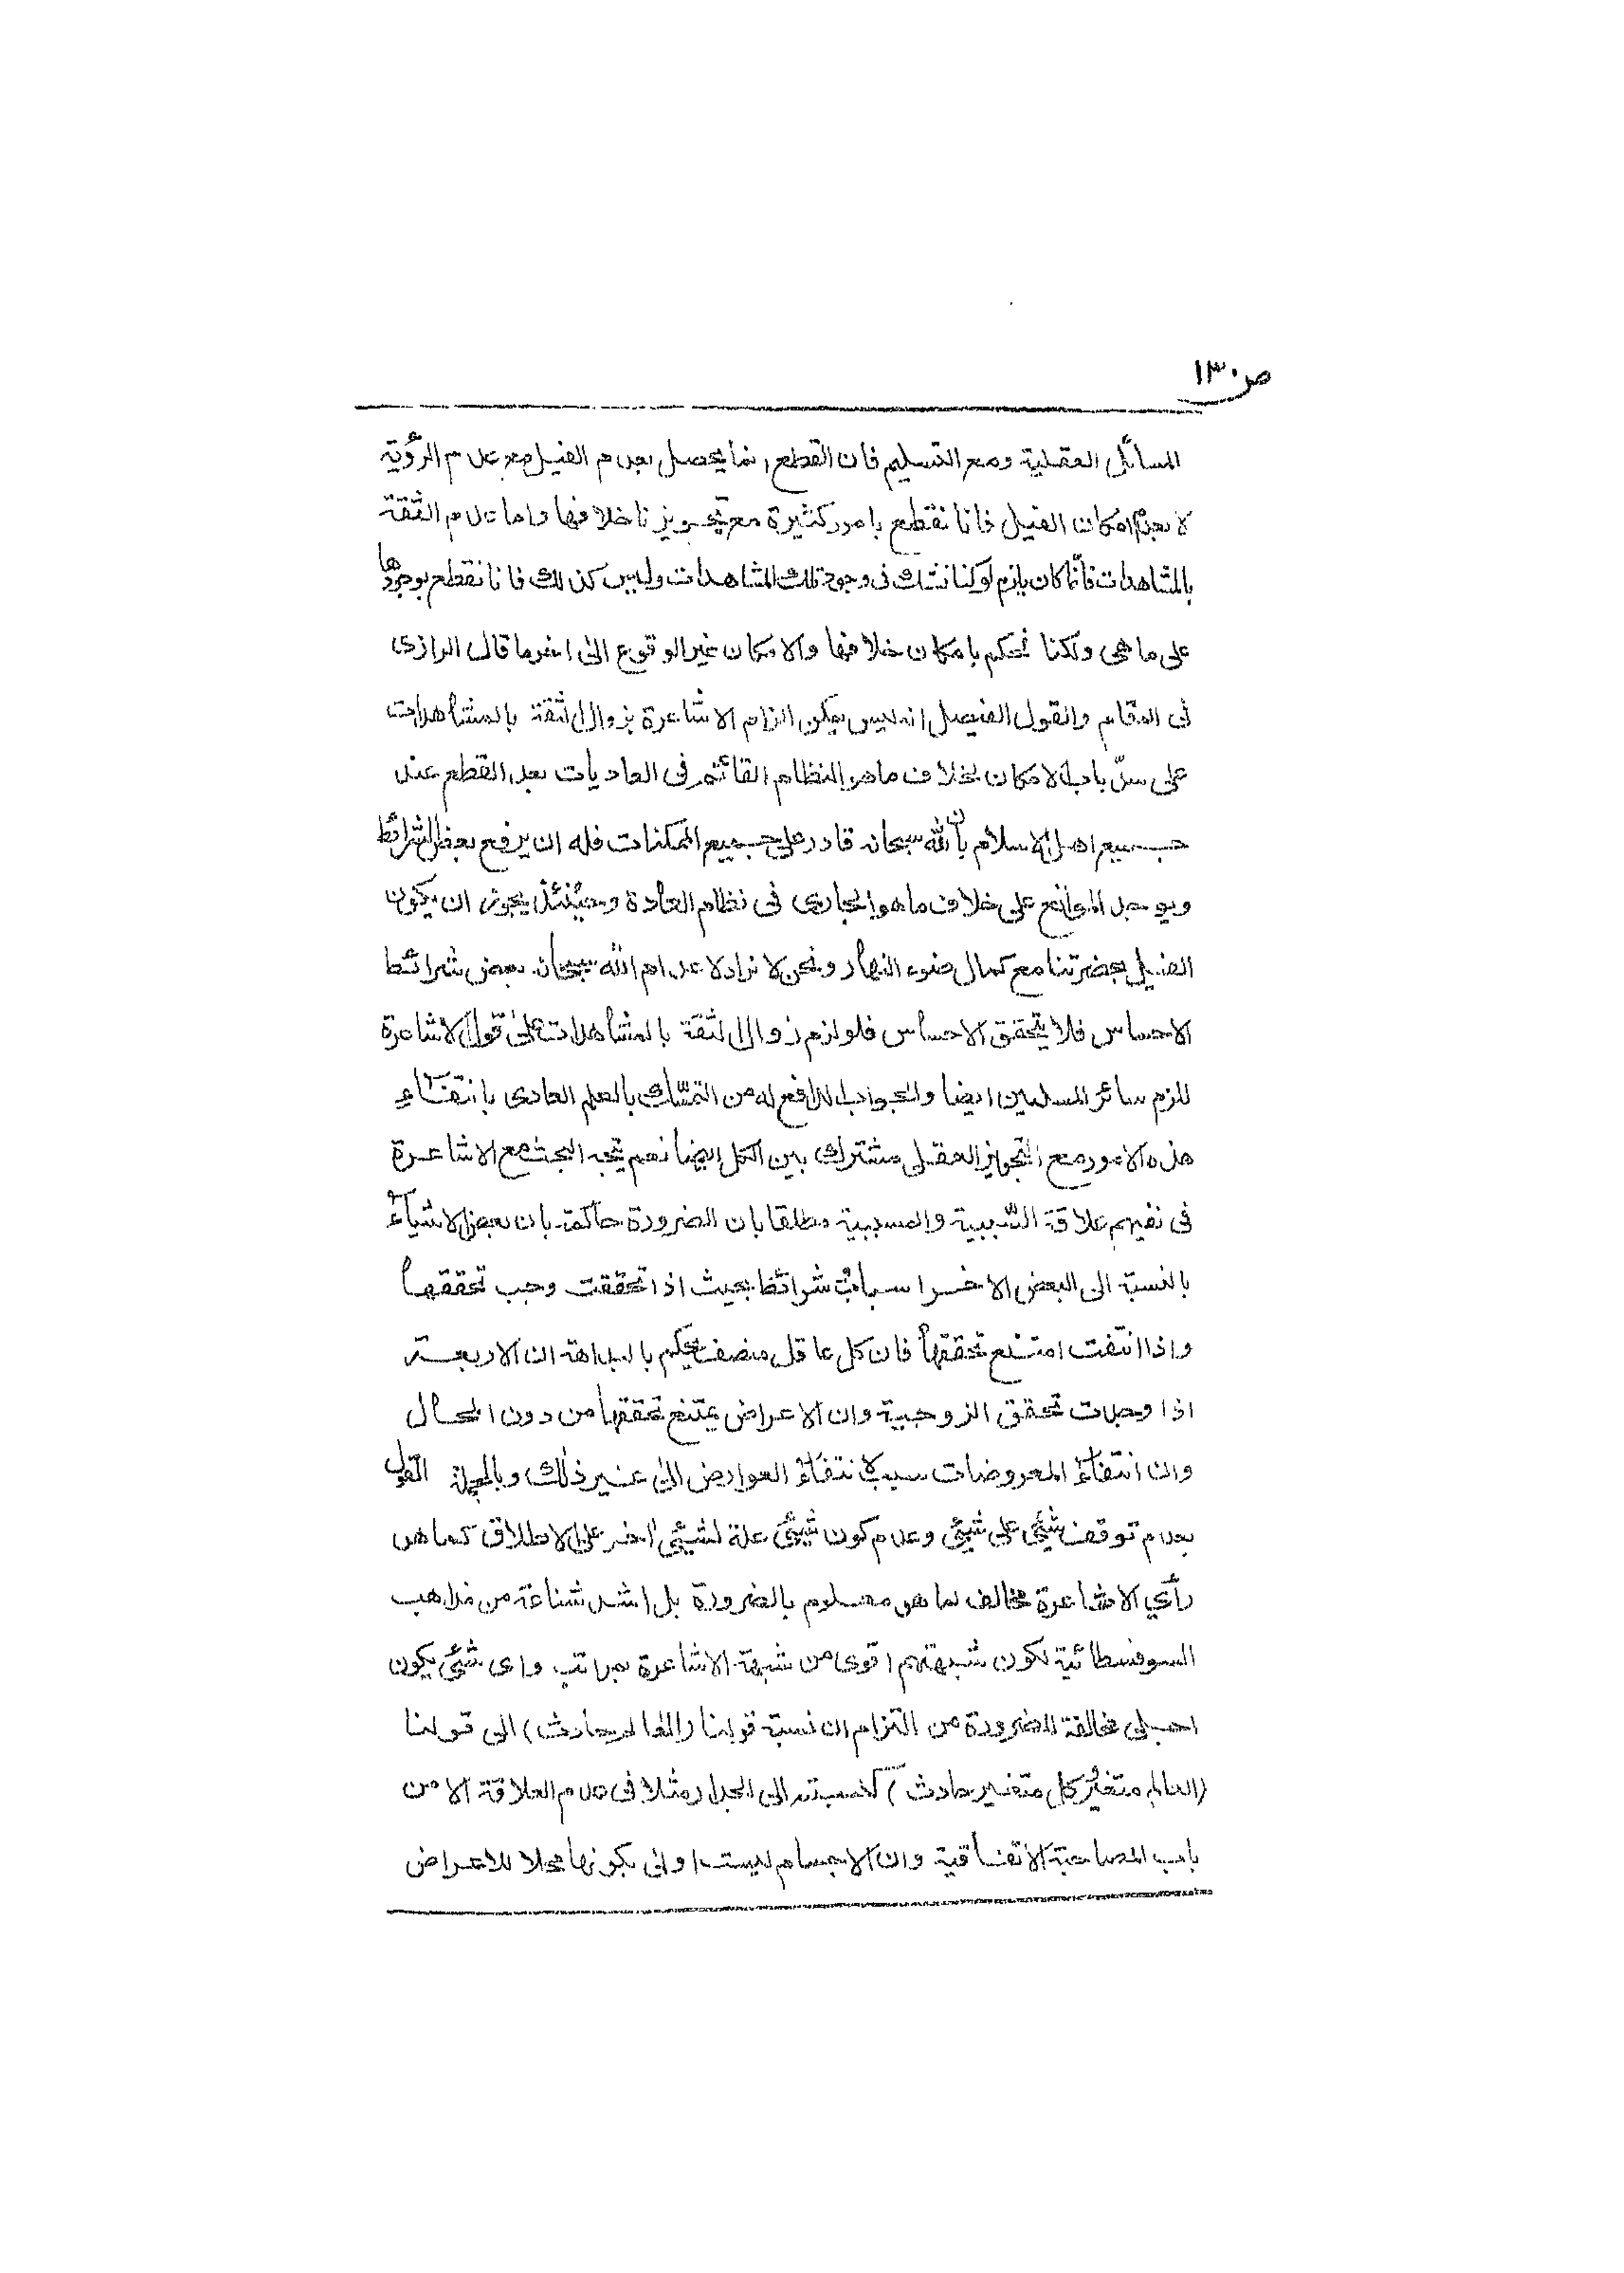 ص ١٣٠
المسائل العقلية ومع التسليم فان القطع انما يحصل بعدم الفيل مع عدم الرؤية
لا بعدم امكان الفيل فانا نقطع بامور كثيرة مع تجويزنا خلافها واما عدم الثقة
بالمشاهدات فانما كان يلزم لو كنا نشك فى وجود تلك المشاهدات وليس كذلك فانا نقطع بوجودها
على ما هى ولكنا نحكم بامكان خلافها والامكان غير الوقوع الى اخر ما قال الرازى
فى المقام والقول الفيصل انه ليس يمكن الزام الاشاعرة بزوال الثقة بالمشاهدات
على سدّ باب الامكان بخلاف ما هو النظام القائم فى العاديات بعد القطع عند
جميع اهل الاسلام بأن الله سبحانه قادر على جميع الممكنات فله ان يرفع بعض الشرائط
ويوجد الموانع على خلاف ما هو الجارى فى نظام العادة وحينئذ يجوز ان يكون
الفيل بحضرتنا مع كمال ضوء النهار ونحن لا نراه لاعدام الله سبحانه بعض شرائط
الاحساس فلا يتحقق الاحساس فلو لزم زوال الثقة بالمشاهدات على قول الاشاعرة
للزم سائر المسلمين ايضا والجواب الدافع له من التمسّك بالعلم العادى بانتفاء
هذه الامور مع التجويز العقلى مشترك بين الكل ايضا نعم يتجه البحث مع الاشاعرة
فى نفيهم علاقة السّببية والمسببية مطلقا بان الضرورة حاكمة بان بعض الاشياء
بالنسبة الى البعض الاخر اسباب شرائط بحيث اذا تحققت وجب تحققها
واذا انتفت امتنع تحققها فان كل عاقل منصف يحكم بالبداهة ان الاربعة
اذا وجدت تحقق الزوجية وان الاعراض يمتنع تحققها من دون المحال
وان انتفاء المعروضات سبب لانتفاء العوارض الى غير ذلك وبالجملة القول
بعدم توقف شيئ على شيئ وعدم كون شيئ علة لشيئ اخر على الاطلاق كما هو
رأي الاشاعرة مخالف لما هو معلوم بالضرورة بل اشد شناعة من مذاهب
السوفسطائية لكون شبهتهم اقوى من شبهة الاشاعرة بمراتب واى شيئ يكون
اجلى مخالفة للضرورة من التزام ان نسبة قولنا (العالم حادث) الى قولنا
(العالم متغيّر كل متغير حادث) كنسبته الى الجدار مثلا فى عدم العلاقة الا من
باب المصاحبة الاتفاقية وان الاجسام ليست اولى بكونها محلا للاعراض